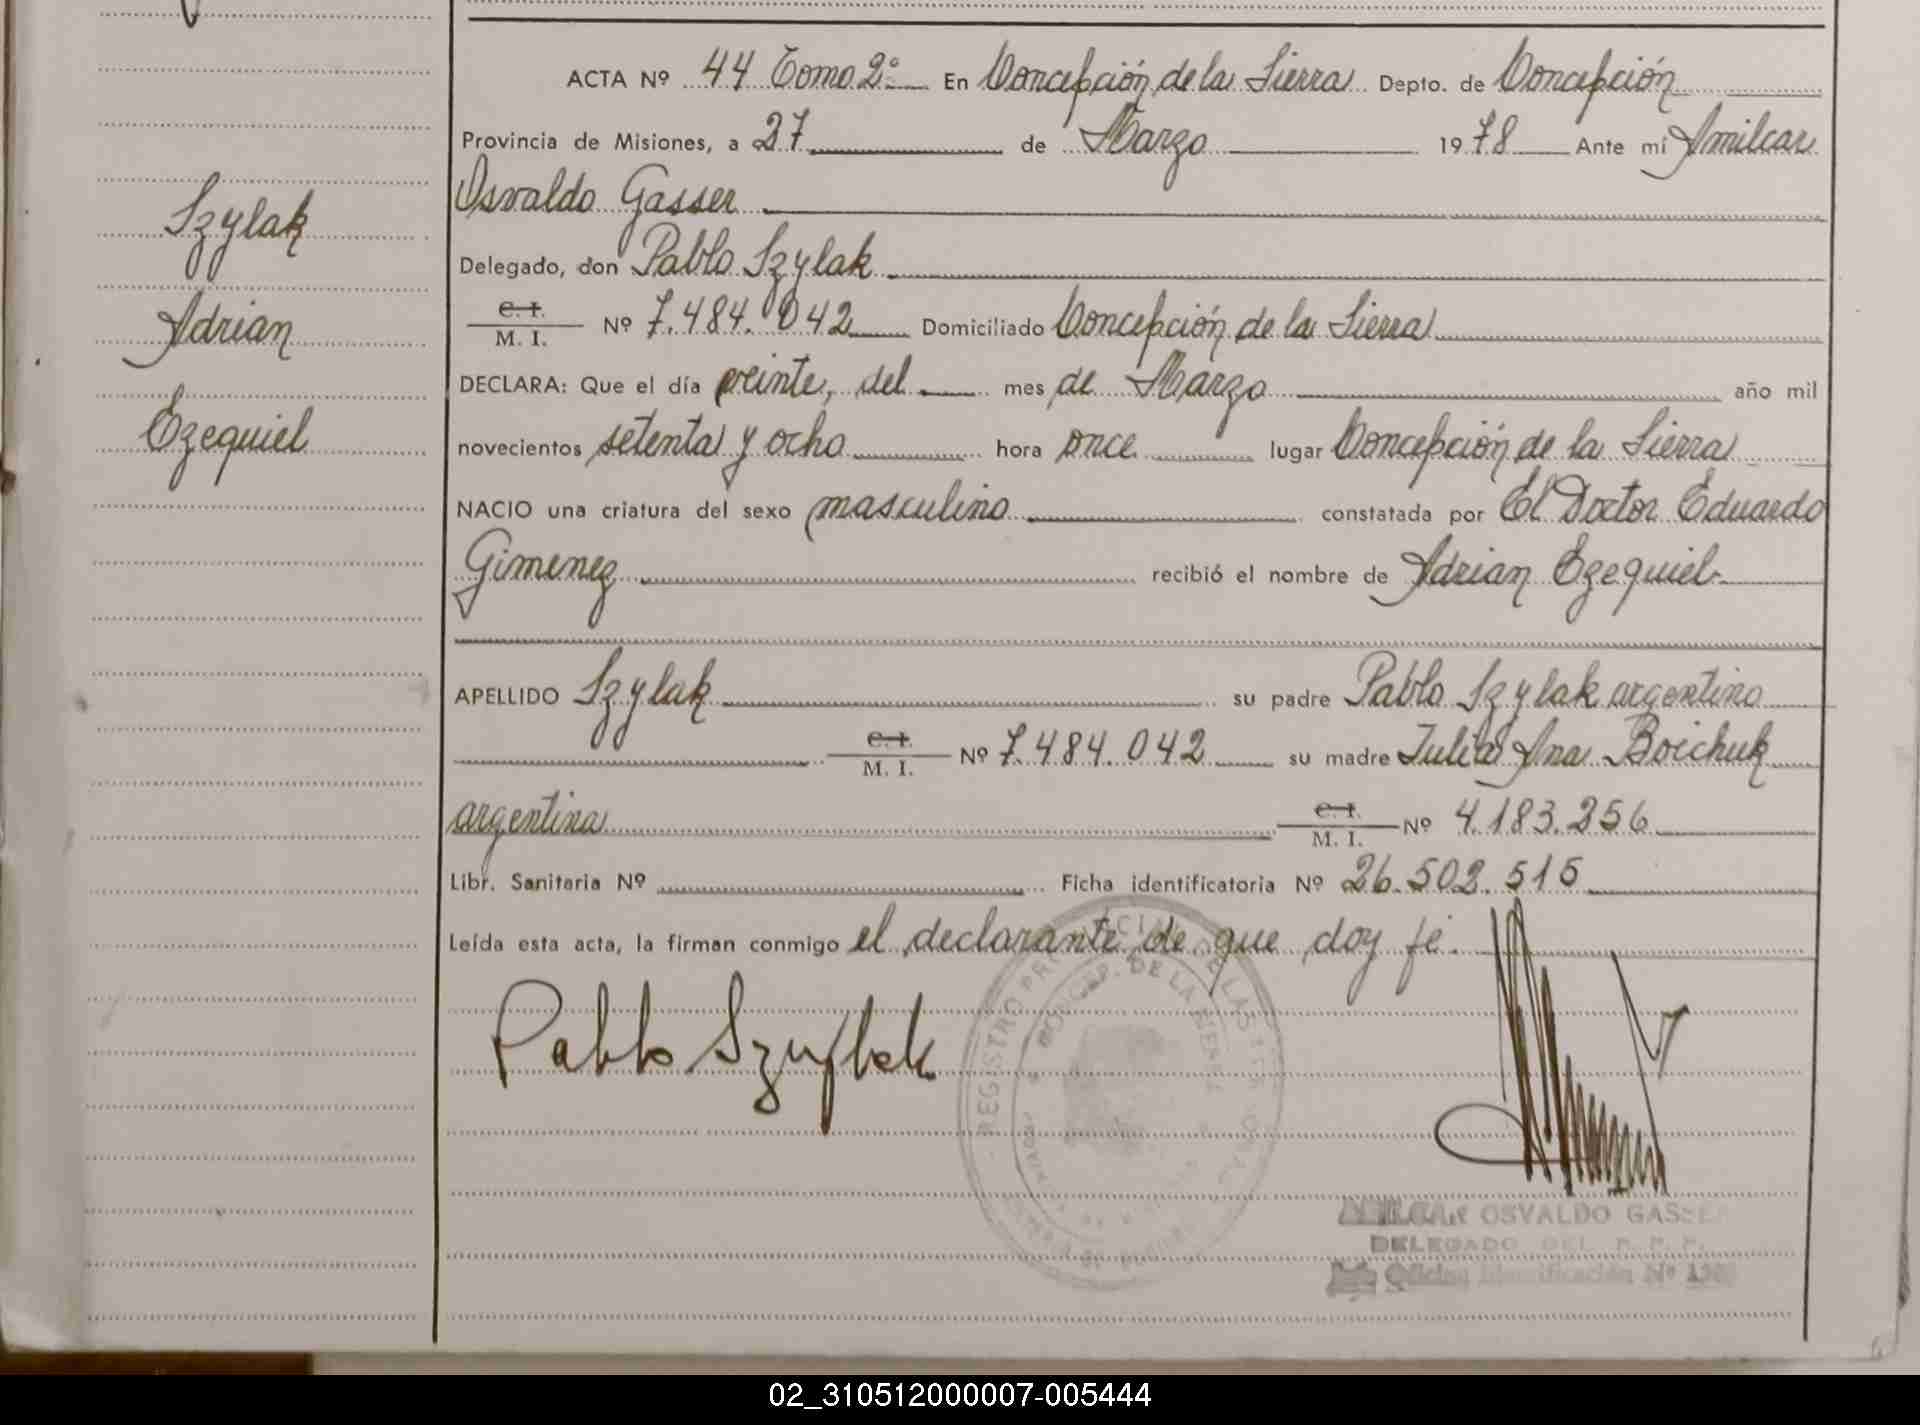 ACTA Nº 44 Tomo 2º En Concepción de la Sierra Depto. de Concepción
Provincia de Misiones, a 27 de Marzo 1978 Ante mí Amilcar
Osvaldo Gasser
Delegado, don Pablo Szylak
C. I.
M. I. Nº 7.484.042 Domiciliado Concepción de la Sierra
DECLARA: Que el día veinte, del mes de Marzo año mil
novecientos setenta y ocho hora once lugar Concepción de la Sierra
NACIO una criatura del sexo masculino constatada por El Doctor Eduardo
Gimenez recibió el nombre de Adrian Ezequiel
APELLIDO Szylak su padre Pablo Szylak argentino
C. I.
M. I. Nº 7.484.042 su madre Julia Ana Boichuk
argentina C. I.
M. I. Nº 4.183.256
Libr. Sanitaria Nº Ficha identificatoria Nº 26.502.515
Leída esta acta, la firman conmigo el declarante de que doy fé.
Szylak
Adrian
Ezequiel
Pablo Szylak
REGISTRO PROVINCIAL DE LAS
CONCEP. DE LA SIERRA
AMILCAR OSVALDO GASSER
DELEGADO DEL R. P. P.
Oficina Identificación Nº
02_310512000007-005444